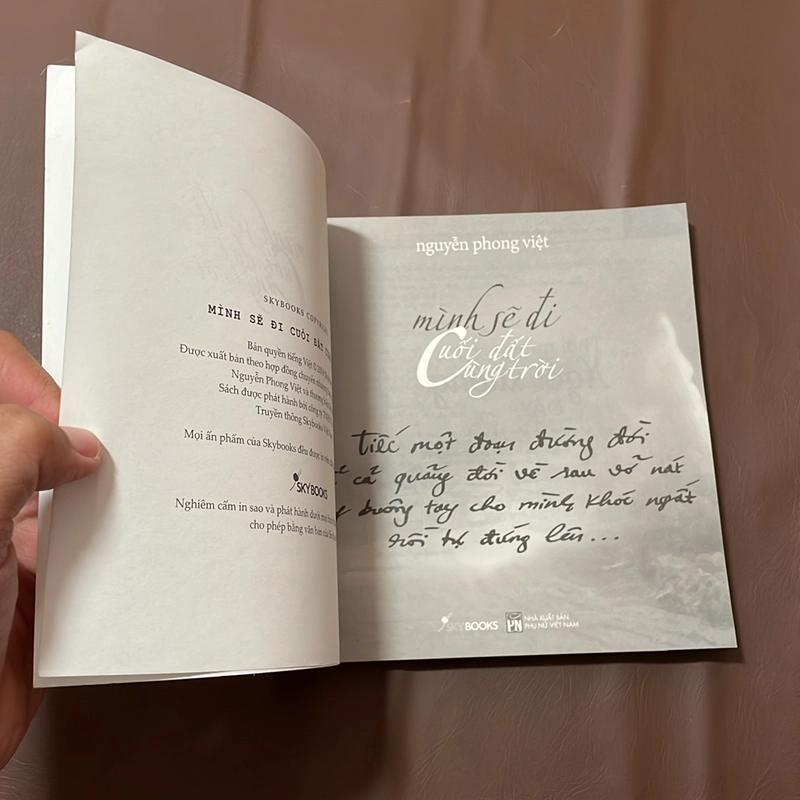 SKYBOOKS
MÌNH SẼ ĐI CUỐI ĐẤT
Bản quyền tiếng Việt ©
Được xuất bản theo hợp đồng chuyển
Nguyễn Phong Việt và
Sách được phát hành bởi công ty
Truyền thông Skybooks Việt
Mọi ấn phẩm của Skybooks đều được
SKYBOOKS
Nghiêm cấm in sao và phát hành dưới
cho phép bằng văn bản của
nguyễn phong việt
mình sẽ đi
Cuối đất
Cùng trời
tiếc một đoạn đường đời
cả quãng đời về sau vỡ nát
buông tay cho mình khóc ngất
rồi tự đứng lên...
SKYBOOKS
PN
NHÀ XUẤT BẢN
PHỤ NỮ VIỆT NAM